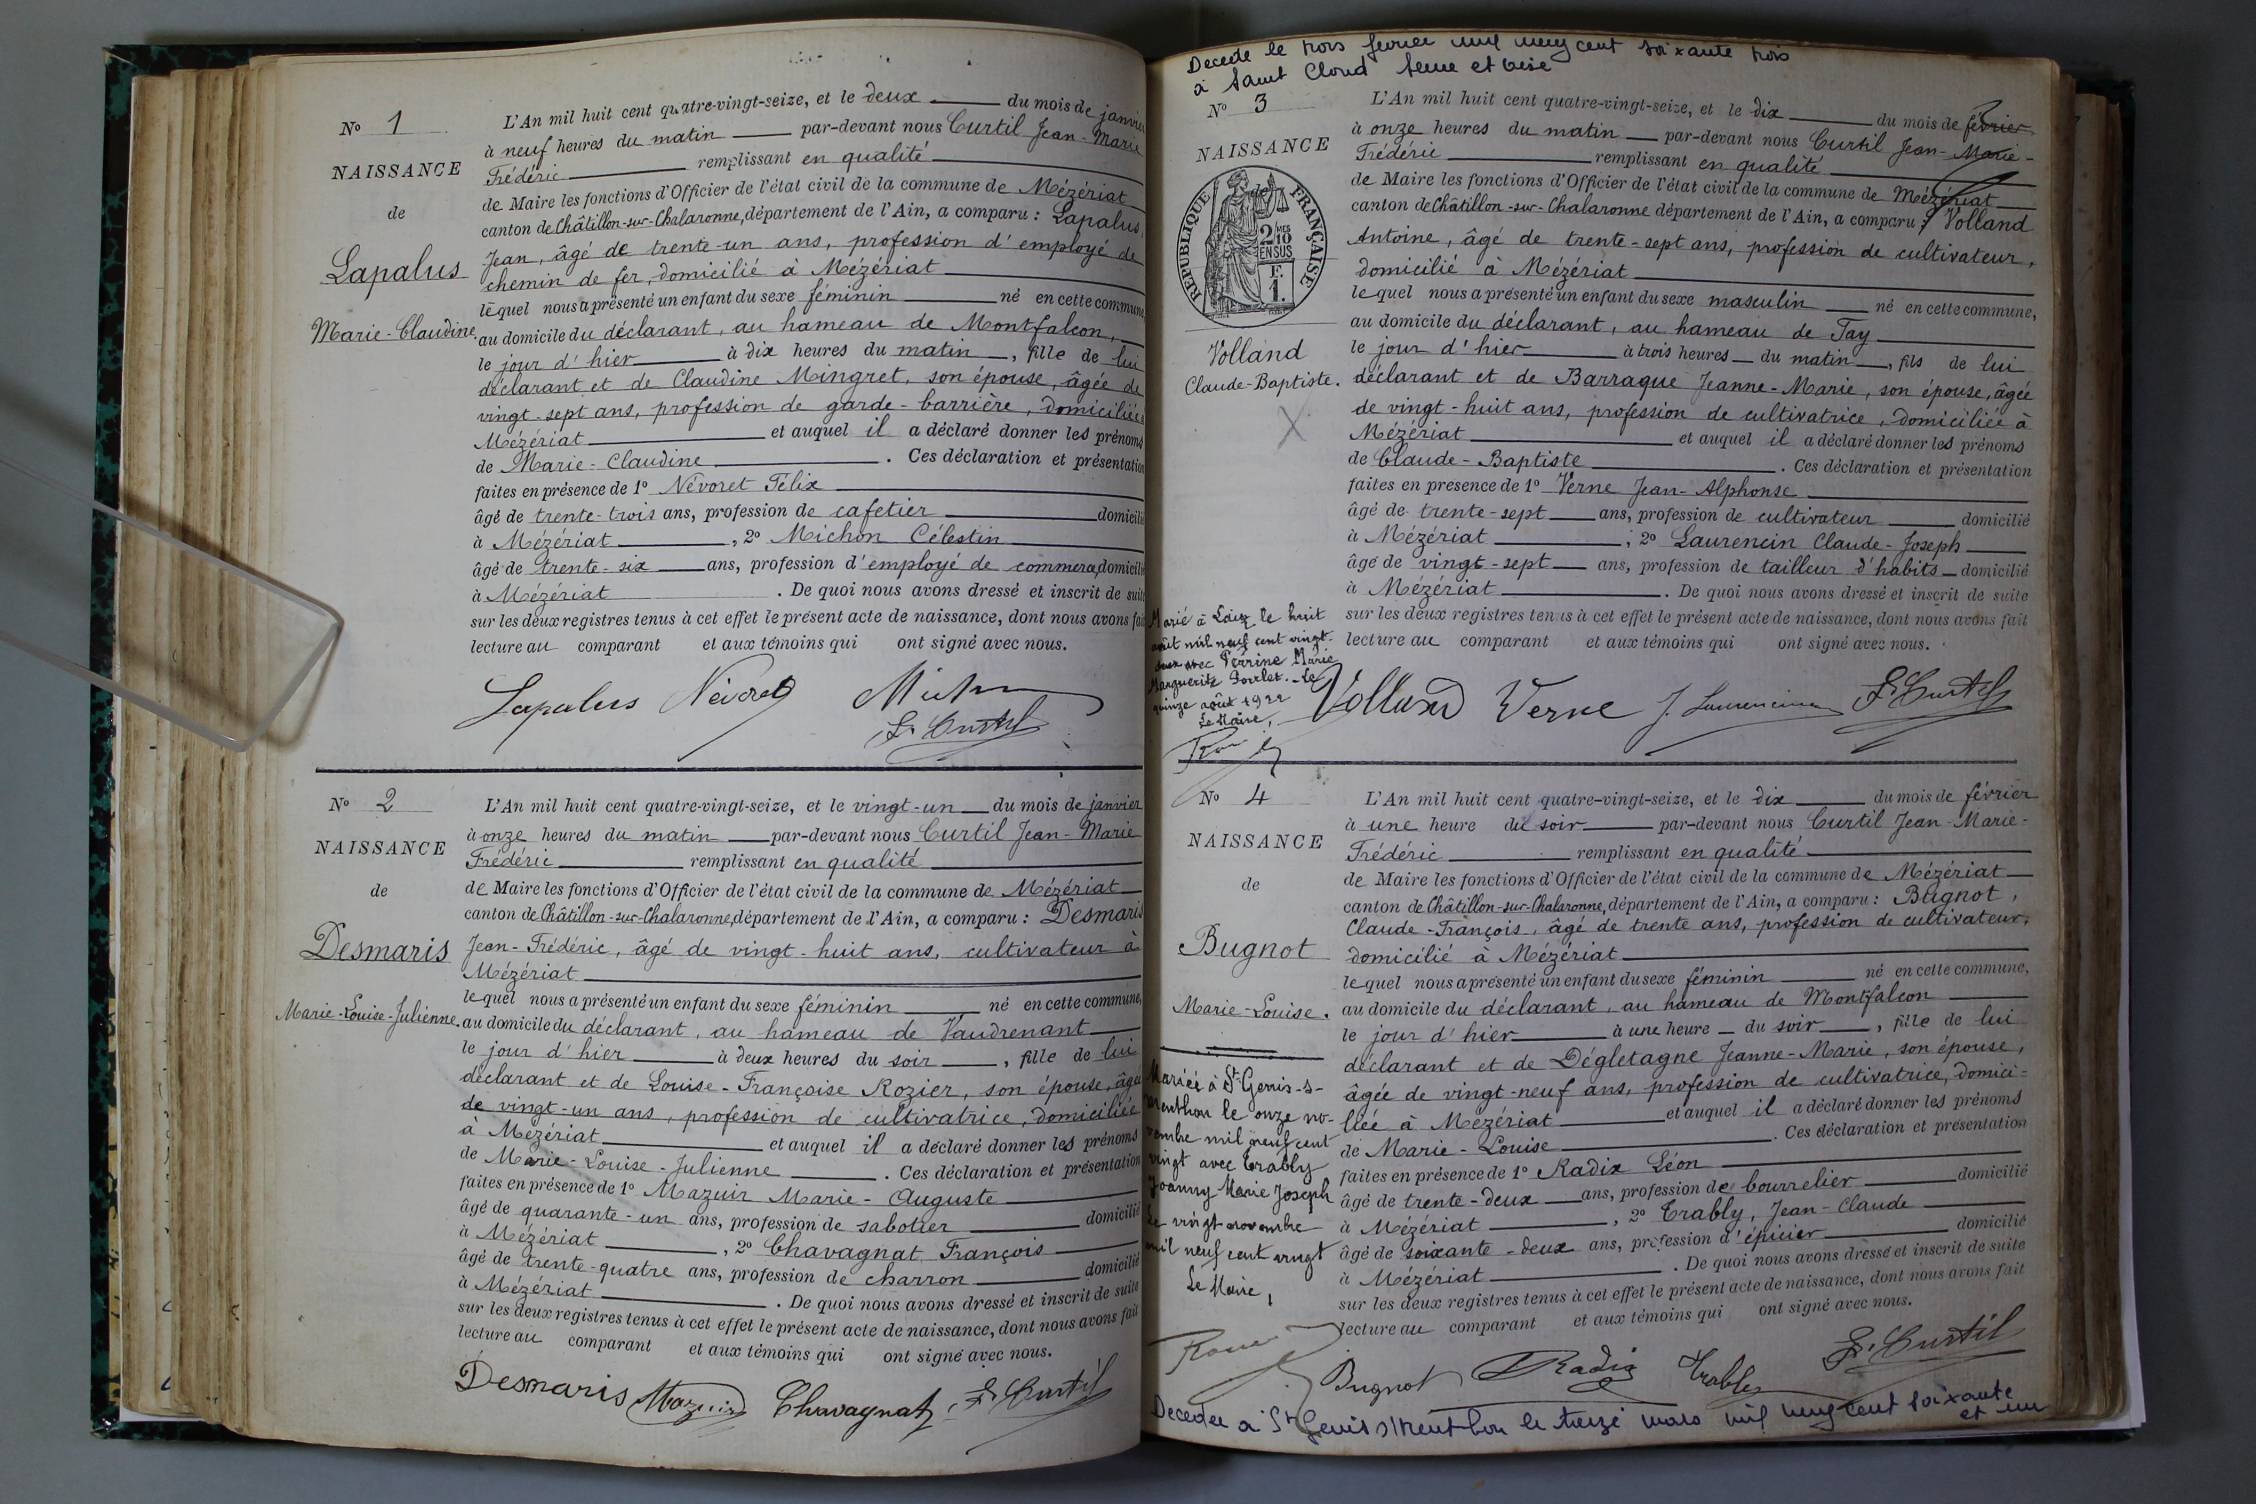 N° 1
NAISSANCE
de
Lapalus
Marie-Claudine.
L'An mil huit cent quatre-vingt-seize, et le deux du mois de janvier
à neuf heures du matin par-devant nous Curtil Jean-Marie
Frédéric remplissant en qualité
de Maire les fonctions d'Officier de l'état civil de la commune de Mézériat
canton de Châtillon-sur-Chalaronne, département de l'Ain, a comparu : Lapalus,
Jean, âgé de trente-un ans, profession d'employé de
chemin de fer, domicilié à Mézériat
lequel nous a présenté un enfant du sexe féminin né en cette commune
au domicile du déclarant, au hameau de Montfalcon,
le jour d'hier à dix heures du matin, fille de lui
déclarant et de Claudine Mingret, son épouse, âgée de
vingt-sept ans, profession de garde-barrière, domiciliée à
Mézériat et auquel il a déclaré donner les prénoms
de Marie-Claudine. Ces déclaration et présentation
faites en présence de 1° Névoret Félix
âgé de trente-trois ans, profession de cafetier domicilié
à Mézériat, 2° Michon Célestin
âgé de trente-six ans, profession d'employé de commerce, domicilié
à Mézériat. De quoi nous avons dressé et inscrit de suite
sur les deux registres tenus à cet effet le présent acte de naissance, dont nous avons fait
lecture au comparant et aux témoins qui ont signé avec nous.
Lapalus Névoret Michon
F. Curtil
N° 2
NAISSANCE
de
Desmaris
Marie-Louise-Julienne.
L'An mil huit cent quatre-vingt-seize, et le vingt-un du mois de janvier
à onze heures du matin par-devant nous Curtil Jean-Marie
Frédéric remplissant en qualité
de Maire les fonctions d'Officier de l'état civil de la commune de Mézériat
canton de Châtillon-sur-Chalaronne, département de l'Ain, a comparu : Desmaris
Jean-Frédéric, âgé de vingt-huit ans, cultivateur à
Mézériat
lequel nous a présenté un enfant du sexe féminin né en cette commune,
au domicile du déclarant, au hameau de Vaudrenant
le jour d'hier à deux heures du soir, fille de lui
déclarant et de Louise-Françoise Rozier, son épouse, âgée
de vingt-un ans, profession de cultivatrice, domiciliée
à Mézériat et auquel il a déclaré donner les prénoms
de Marie-Louise-Julienne. Ces déclaration et présentation
faites en présence de 1° Mazuir Marie-Auguste
âgé de quarante-un ans, profession de sabotier domicilié
à Mézériat, 2° Chavagnat François
âgé de trente-quatre ans, profession de charron domicilié
à Mézériat. De quoi nous avons dressé et inscrit de suite
sur les deux registres tenus à cet effet le présent acte de naissance, dont nous avons fait
lecture au comparant et aux témoins qui ont signé avec nous.
Desmaris Mazuir Chavagnat F. Curtil
Décédé le trois février mil neuf cent soixante trois
à Saint Cloud Seine et Oise
N° 3
NAISSANCE
de
RÉPUBLIQUE FRANÇAISE
2/10 MES
EN SUS
F.
1.
Volland
Claude-Baptiste.
L'An mil huit cent quatre-vingt-seize, et le dix du mois de février
à onze heures du matin par-devant nous Curtil Jean-Marie-
Frédéric remplissant en qualité
de Maire les fonctions d'Officier de l'état civil de la commune de Mézériat
canton de Châtillon-sur-Chalaronne département de l'Ain, a comparu : Volland
Antoine, âgé de trente-sept ans, profession de cultivateur,
domicilié à Mézériat
lequel nous a présenté un enfant du sexe masculin né en cette commune,
au domicile du déclarant, au hameau de Tay
le jour d'hier à trois heures du matin, fils de lui
déclarant et de Barraque Jeanne-Marie, son épouse, âgée
de vingt-huit ans, profession de cultivatrice, domiciliée à
Mézériat et auquel il a déclaré donner les prénoms
de Claude-Baptiste. Ces déclaration et présentation
faites en présence de 1° Verne Jean-Alphonse
âgé de trente-sept ans, profession de cultivateur domicilié
à Mézériat, 2° Laurencin Claude-Joseph
âgé de vingt-sept ans, profession de tailleur d'habits domicilié
à Mézériat. De quoi nous avons dressé et inscrit de suite
sur les deux registres tenus à cet effet le présent acte de naissance, dont nous avons fait
lecture au comparant et aux témoins qui ont signé avec nous.
Marié à le huit
août mil neuf cent vingt-
deux avec Perrine Marie
Marguerite . Le
quinze août 1922
Le Maire,
Volland Verne J. Laurencin F. Curtil
N° 4
NAISSANCE
de
Bugnot
Marie-Louise.
L'An mil huit cent quatre-vingt-seize, et le dix du mois de février
à une heure du soir par-devant nous Curtil Jean-Marie-
Frédéric remplissant en qualité
de Maire les fonctions d'Officier de l'état civil de la commune de Mézériat
canton de Châtillon-sur-Chalaronne, département de l'Ain, a comparu : Bugnot,
Claude-François, âgé de trente ans, profession de cultivateur,
domicilié à Mézériat
lequel nous a présenté un enfant du sexe féminin né en cette commune,
au domicile du déclarant, au hameau de Montfalcon
le jour d'hier à une heure du soir, fille de lui
déclarant et de Dégletagne Jeanne-Marie, son épouse,
âgée de vingt-neuf ans, profession de cultivatrice, domici-
liée à Mézériat et auquel il a déclaré donner les prénoms
de Marie-Louise. Ces déclaration et présentation
faites en présence de 1° Radix Léon
âgé de trente-deux ans, profession de bourrelier domicilié
à Mézériat, 2° Trably, Jean-Claude
âgé de soixante-deux ans, profession d'épicier domicilié
à Mézériat. De quoi nous avons dressé et inscrit de suite
sur les deux registres tenus à cet effet le présent acte de naissance, dont nous avons fait
lecture au comparant et aux témoins qui ont signé avec nous.
Mariée à St Genis-s-
Menthon le onze no-
vembre mil neuf cent
vingt avec Trably
Joanny Marie Joseph
Le vingt novembre
mil neuf cent vingt
Le Maire,
Bugnot Radix Trably F. Curtil
Décédée à St Genis s/Menthon le treize mars mil neuf cent soixante
et un